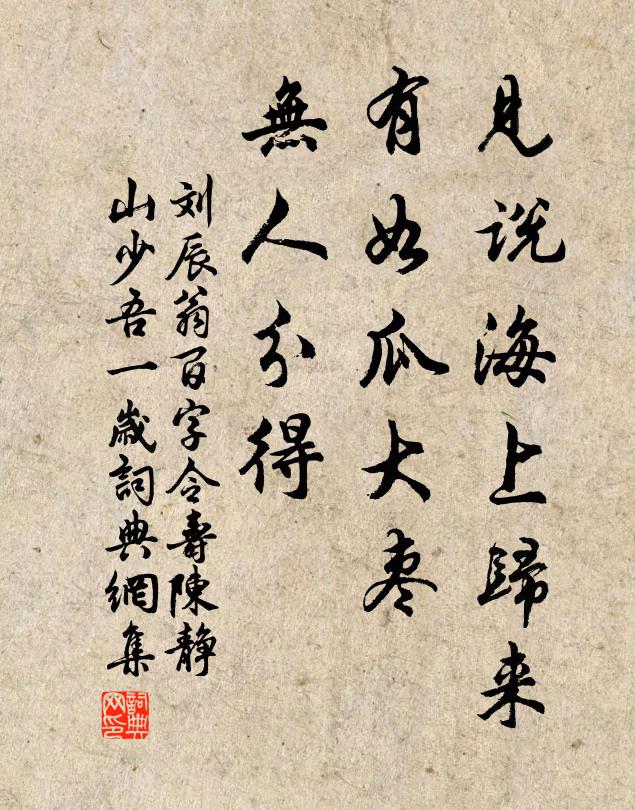 見說海上歸来
有如瓜大枣
無人分得
刘辰翁百字令壽陳静
山少吾一歲詞典網集
詞典网印